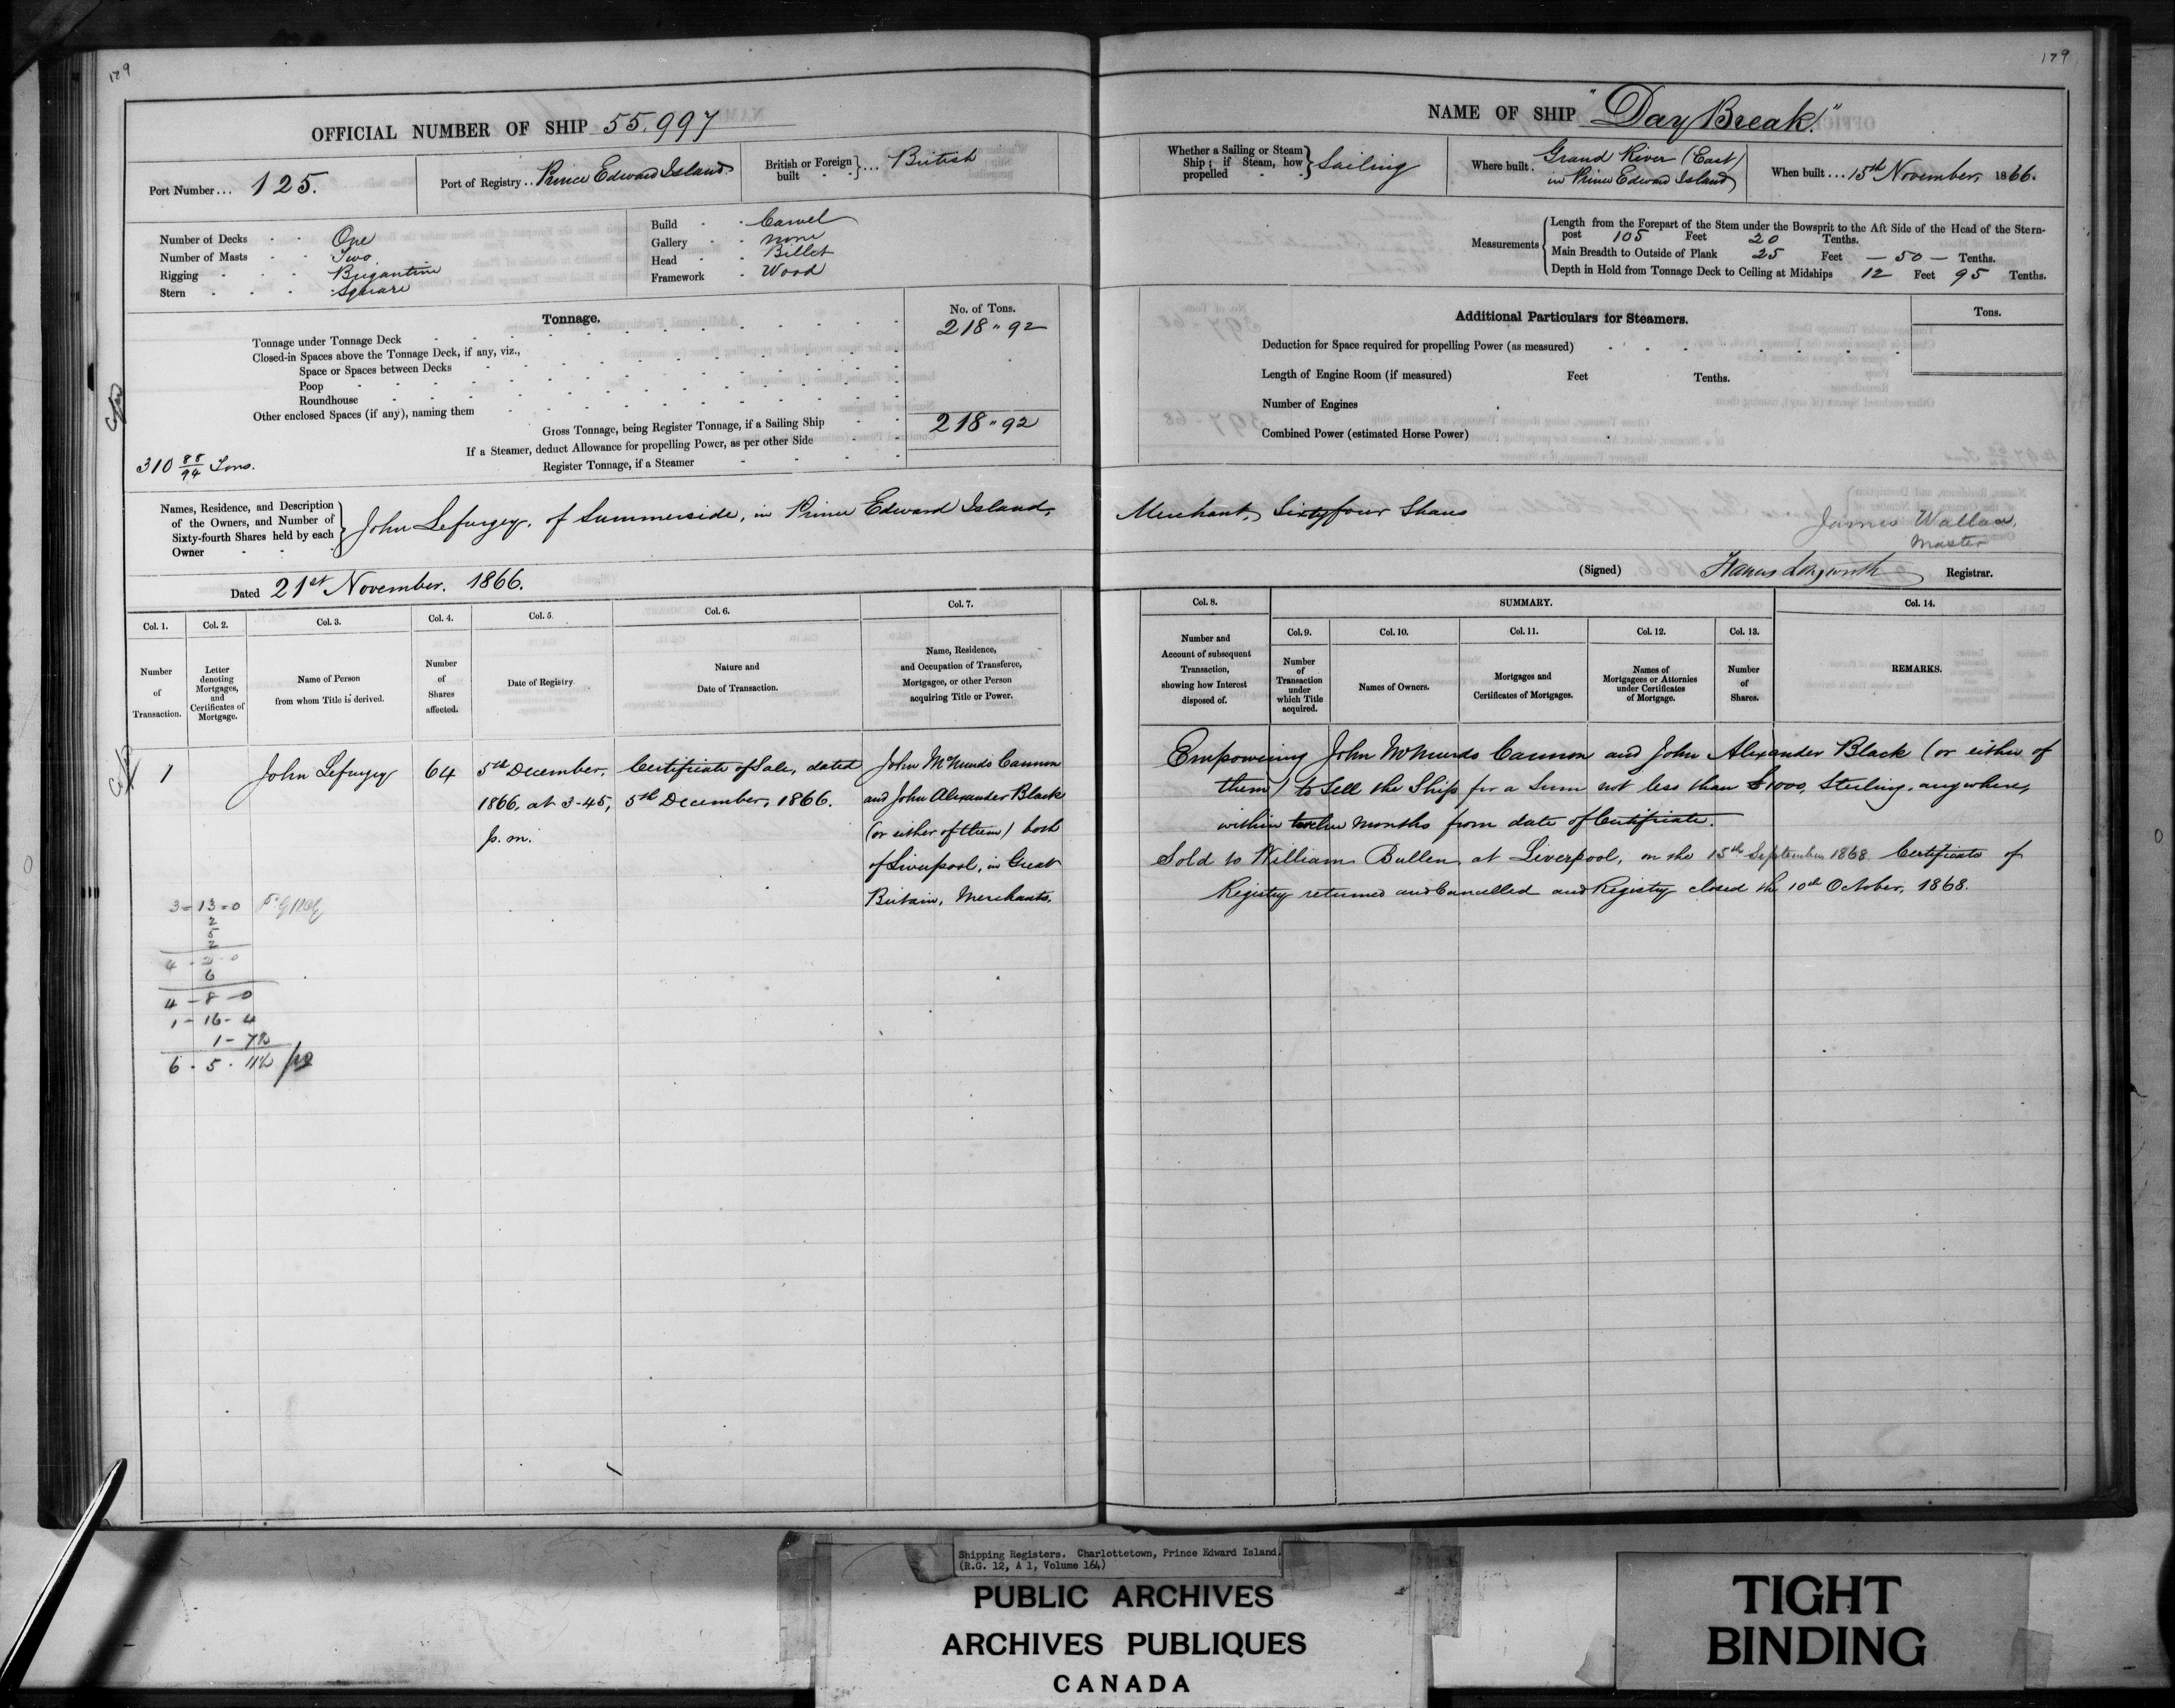 179
OFFICIAL NUMBER OF SHIP 55,997
Port Number ... 125.
Port of Registry .. Prince Edward Island
British or Foreign built } ... British
Number of Decks One
Number of Masts Two
Rigging Brigantine
Stern Square
Build Carvel
Gallery none
Head Billet
Framework Wood
Tonnage.
No. of Tons.
Tonnage under Tonnage Deck 218 " 92
Closed-in Spaces above the Tonnage Deck, if any, viz.,
Space or Spaces between Decks
Poop
Roundhouse
Other enclosed Spaces (if any), naming them
Gross Tonnage, being Register Tonnage, if a Sailing Ship 218 " 92
If a Steamer, deduct Allowance for propelling Power, as per other Side
Register Tonnage, if a Steamer
310 88/94 Tons.
Names, Residence, and Description of the Owners, and Number of Sixty-fourth Shares held by each Owner } John Lefurgey, of Summerside, in Prince Edward Island,
Dated 21st November, 1866.
Col. 1. Col. 2. Col. 3. Col. 4. Col. 5. Col. 6. Col. 7.
Number of Transaction.
Letter denoting Mortgages, and Certificates of Mortgage.
Name of Person from whom Title is derived.
Number of Shares affected.
Date of Registry.
Nature and Date of Transaction.
Name, Residence, and Occupation of Transferee, Mortgagee, or other Person acquiring Title or Power.
1 John Lefurgey 64 5th December, Certificate of Sale, dated John McMurdo Cannon
1866, at 3-45, 5th December, 1866. and John Alexander Black
p.m. (or either of them) both
of Liverpool, in Great
Britain, Merchants.
3-13-0
2
5
2
6
4-8-0
1-16-4
179
NAME OF SHIP "Day Break."
Whether a Sailing or Steam Ship; if Steam, how propelled } Sailing
Where built. Grand River (East) in Prince Edward Island
When built ... 15th November, 1866.
Measurements
Length from the Forepart of the Stem under the Bowsprit to the Aft Side of the Head of the Stern-
post 105 Feet 20 Tenths.
Main Breadth to Outside of Plank 25 Feet — 50 — Tenths.
Depth in Hold from Tonnage Deck to Ceiling at Midships 12 Feet 95 Tenths.
Additional Particulars for Steamers.
Tons.
Deduction for Space required for propelling Power (as measured)
Length of Engine Room (if measured) Feet Tenths.
Number of Engines
Combined Power (estimated Horse Power)
Merchant, Sixtyfour Shares
James Wallace,
Master
(Signed) Francis Longworth Registrar.
Col. 8. SUMMARY. Col. 14.
Col. 9. Col. 10. Col. 11. Col. 12. Col. 13.
Number and Account of subsequent Transaction, showing how Interest disposed of.
Number of Transaction under which Title acquired.
Names of Owners.
Mortgages and Certificates of Mortgages.
Names of Mortgagees or Attornies under Certificates of Mortgage.
Number of Shares.
REMARKS.
Empowering John McMurdo Cannon and John Alexander Black (or either of
them) to Sell the Ship for a Sum not less than £1000, Sterling, anywhere,
within twelve months from date of Certificate.
Sold to William Bullen at Liverpool, on the 15th September 1868 Certificate of
Registry returned and Cancelled and Registry closed the 10th October, 1868.
Shipping Registers. Charlottetown, Prince Edward Island.
(R.G. 12, A 1, Volume 164)
PUBLIC ARCHIVES
ARCHIVES PUBLIQUES
CANADA
TIGHT
BINDING